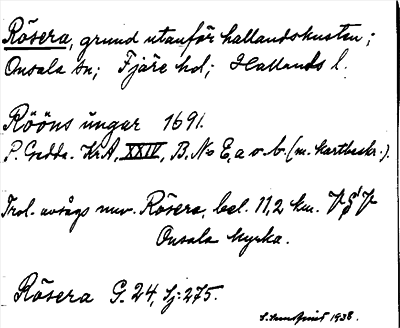 Rösera, grund utanför hallandskusten;
Onsala sn; Fjäre hd; Hallands l.
Rööns ungar 1691.
P. Gedda. KrA, XXIV, B. No E, a o b. (m. kartbeskr.).
Trol. avsågs nuv. Rösera, bel. 11,2 km.
Onsala kyrka.
Rösera G. 24, Sj: 275.
1938.